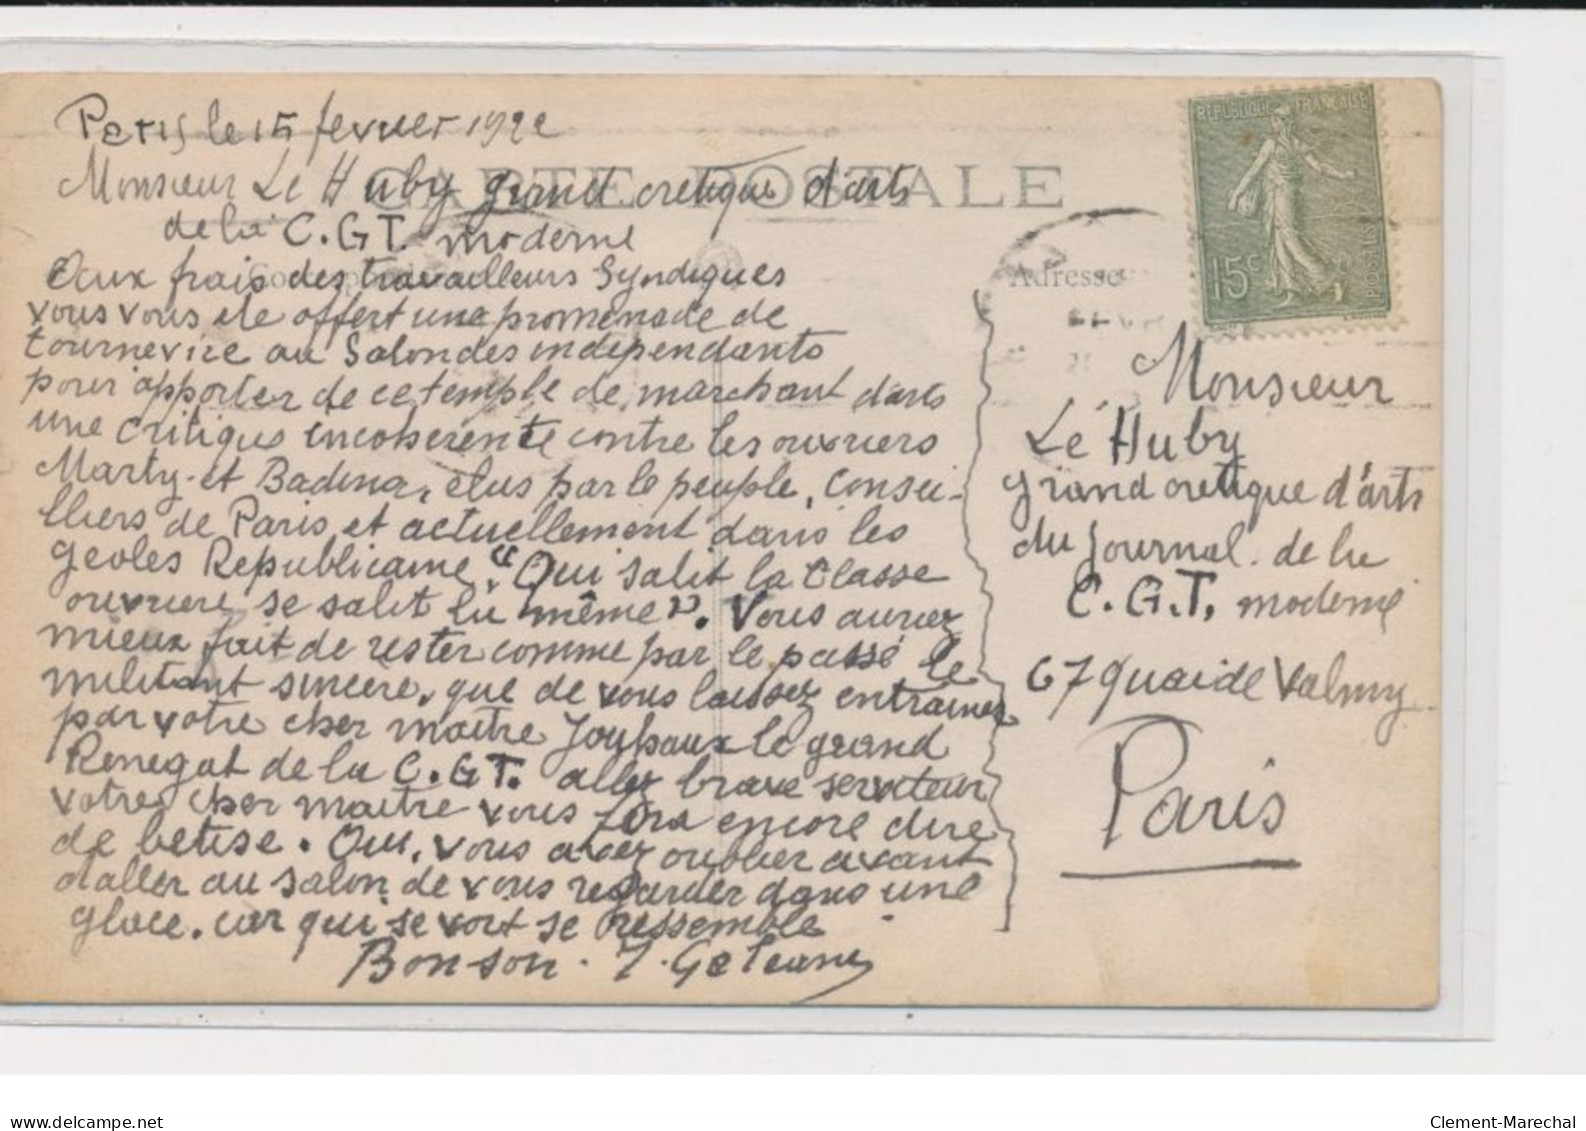 Paris le 15 fevrier 1922
CARTE POSTALE
Monsieur Le Huby grand cretique d'arts
de la C.G.T. moderne
Aux frais des travailleurs Syndiques
vous vous ete offert une promenade de
tournevire au Salon des independants
pour apporter de ce temple de marchant dans
une critique incoherente contre les ouvriers
Marty et Badina, elus par le peuple, Consei-
lliers de Paris et actuellement dans les
geoles Republicaine. "Qui salit la Classe
ouvriere se salit lui même". Vous auriez
mieux fait de rester comme par le passé le
militant sincere, que de vous laissez entrainer
par votre cher maitre Jouhaux le grand
Renegat de la C.G.T. allez brave serviteur
votre cher maitre vous fera encore dire
de betise. Oui, vous avez oublier avant
d'aller au salon de vous regarder dans une
glace. car qui se voit se ressemble
Bonsoir. J.
Adresse
REPUBLIQUE FRANÇAISE
15c
POSTES
Monsieur
Le Huby
grand cretique d'arts
du Journal de la
C.G.T. moderne
67 quai de Valmy
Paris
www.delcampe.net
Clement-Marechal